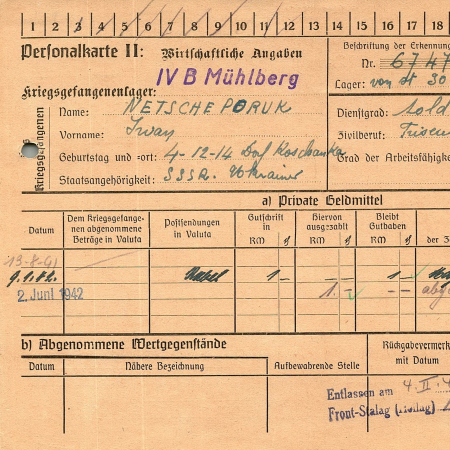 1 2 3 4 5 6 7 8 9 10 11 12 13 14 15 16 17 18
Personalkarte II: Wirtschaftliche Angaben
Beschriftung der Erkennung
IV B Mühlberg
Nr. 6747
Kriegsgefangenenlager:
Lager:
Name: NETSCHEPORUK
Dienstgrad: Sold
Vorname: Iwan
Zivilberuf:
Geburtstag und -ort: 4-12-14 Dorf
Grad der Arbeitsfähigke
Staatsangehörigkeit: SSSR. Ukraine
des Kriegsgefangenen
a) Private Geldmittel
Datum
Dem Kriegsgefangenen abgenommene Beträge in Valuta
Postsendungen in Valuta
Gutschrift in RM
Hiervon ausgezahlt RM
Bleibt Guthaben RM
der
13-8-41
1 —
1 —
2. Juni 1942
1. —
b) Abgenommene Wertgegenstände
Rückgabevermerk mit Datum
Datum
Nähere Bezeichnung
Aufbewahrende Stelle
Entlassen am 4. II. 4
Front-Stalag (Heilag)